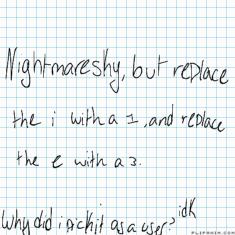 Nightmareshy, but replace
the i with a 1, and replace
the e with a 3.
Why did i pick it as a user? idk
FLIPANIM.COM